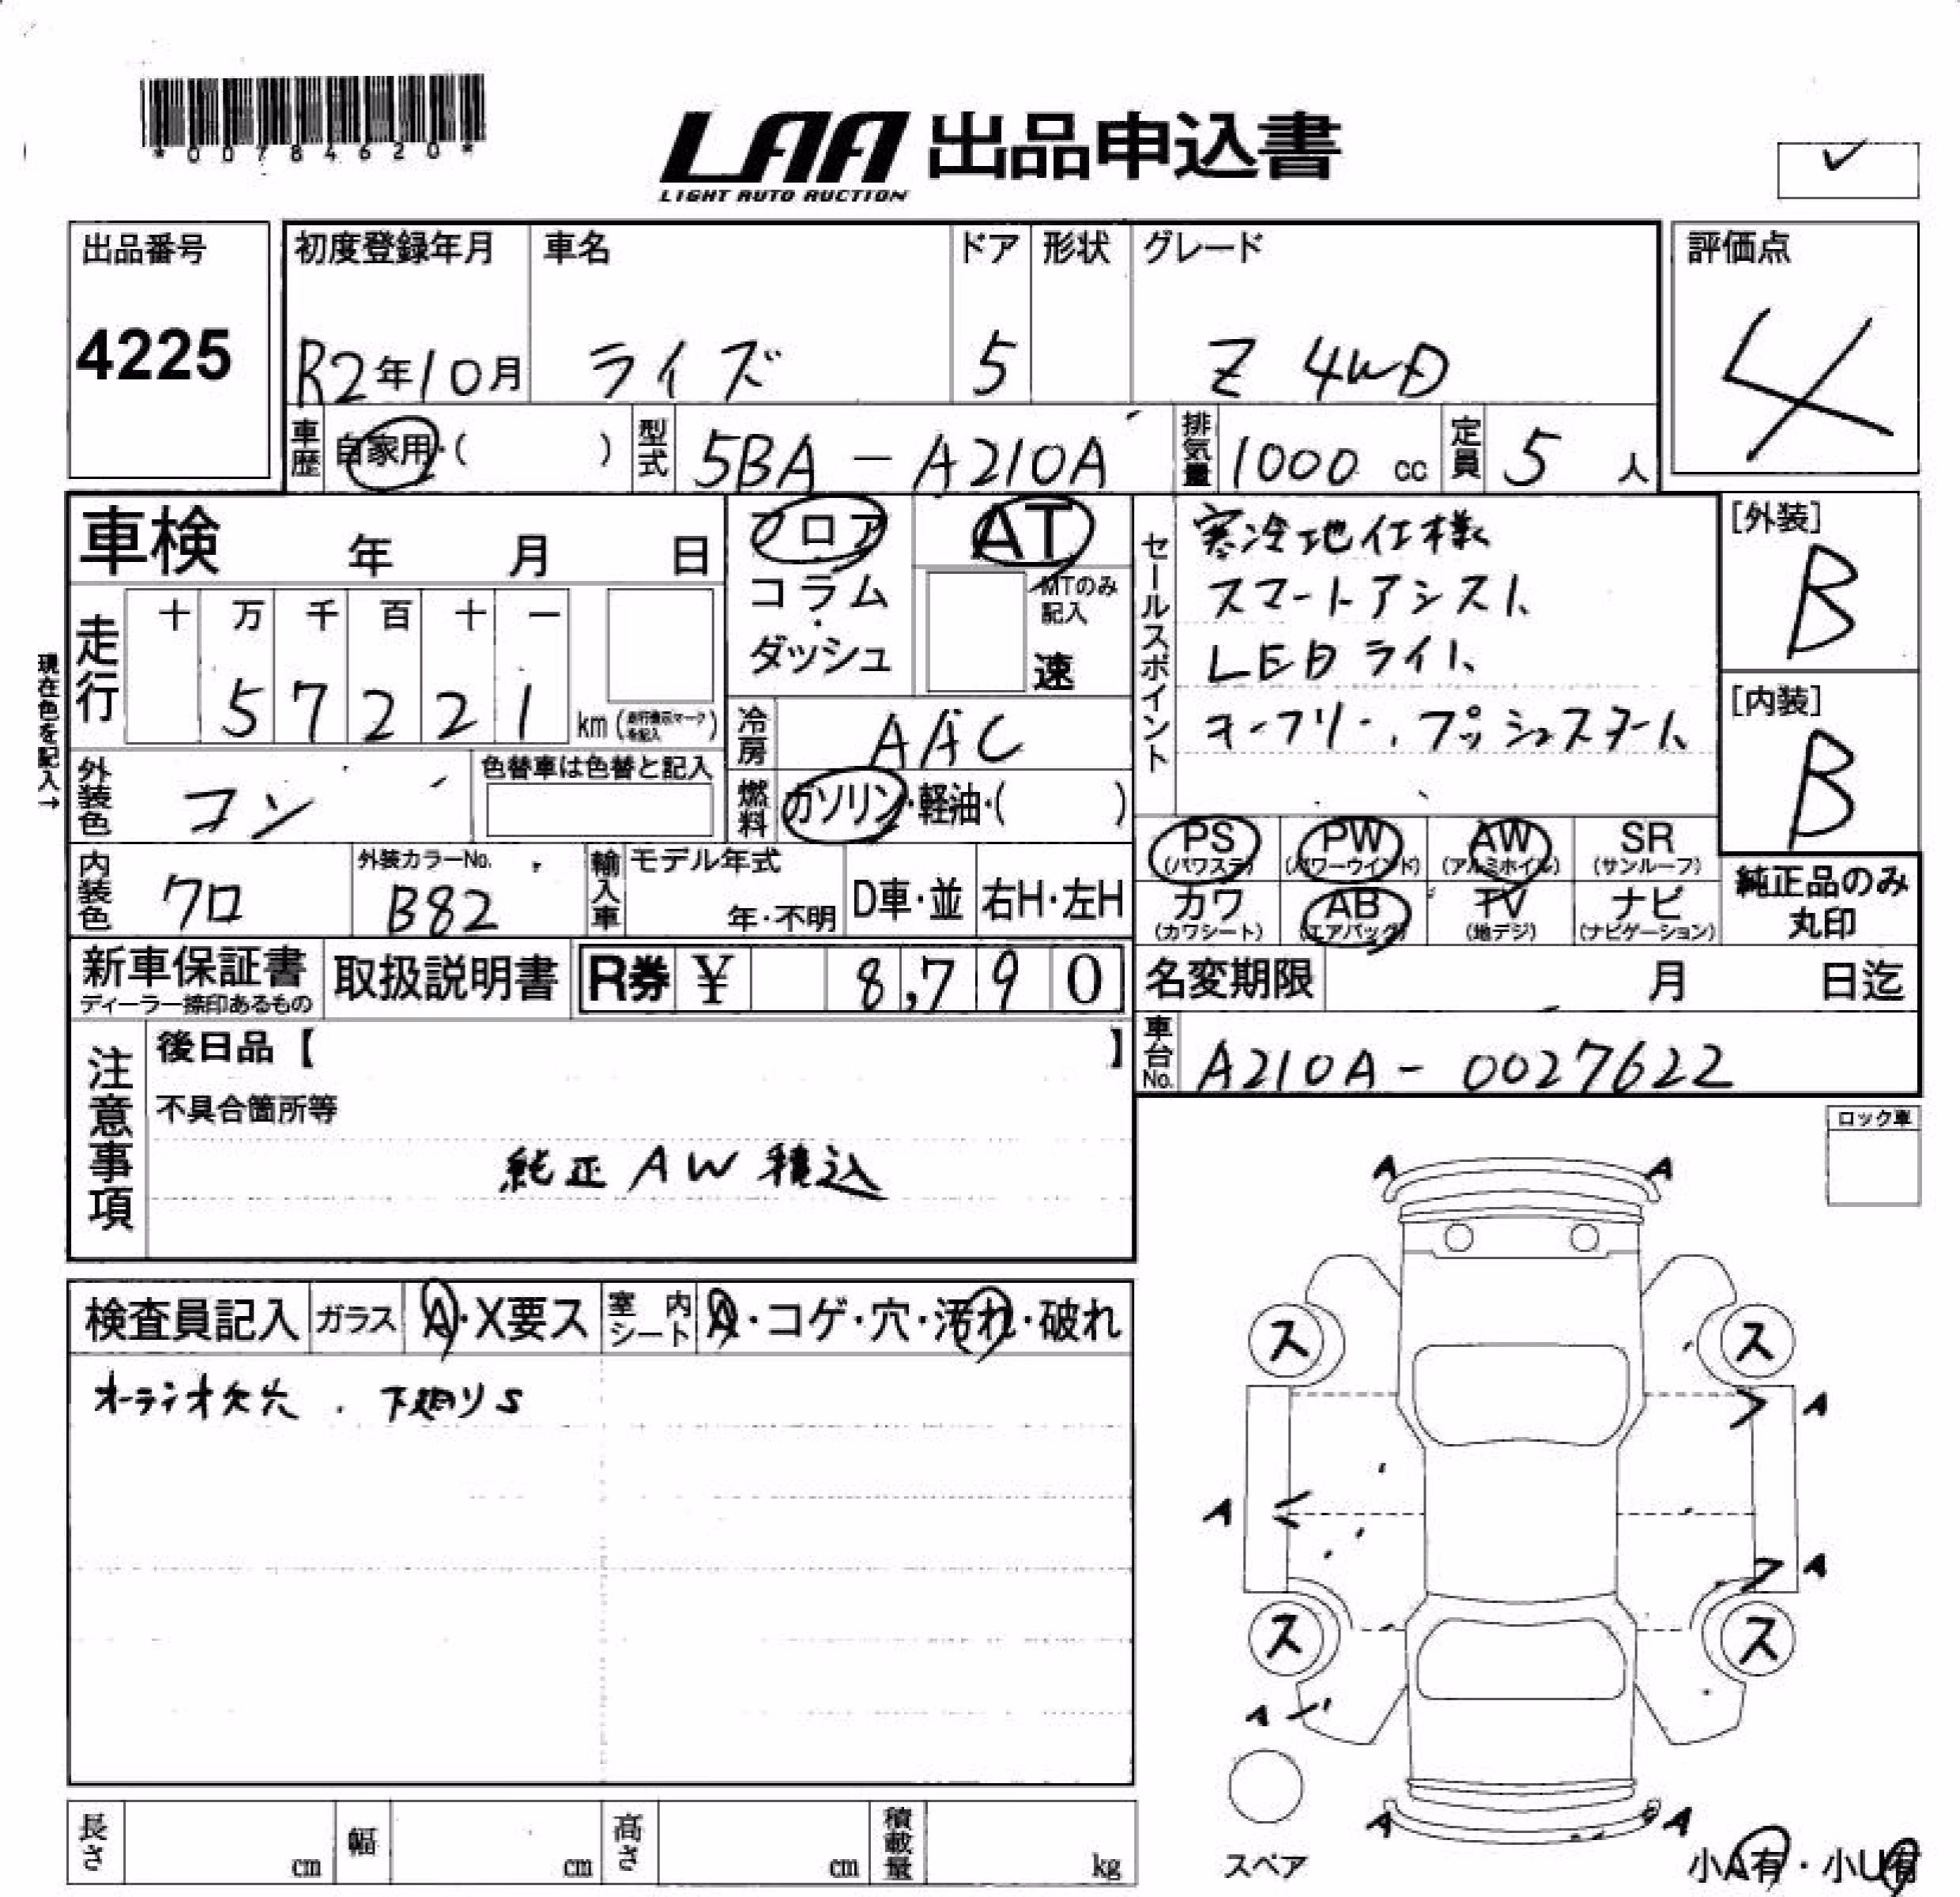 *00784620*
LAA 出品申込書
LIGHT AUTO AUCTION
✓
出品番号
4225
初度登録年月
R2年10月
車名
ライズ
ドア
5
形状
グレード
Z 4WD
評価点
4
車歴 自家用・( )
型式 5BA - A210A
排気量 1000 cc
定員 5 人
車検 年 月 日
フロア
コラム・
ダッシュ
AT
MTのみ記入
速
セールスポイント
寒冷地仕様
スマートアシスト
LEDライト
キーフリー、プッシュスタート
[外装]
B
[内装]
B
現在色を記入→
走行 十 万 千 百 十 一
5 7 2 2 1 km (走行表示マークを記入)
冷房 AAC
外装色 コン
色替車は色替と記入
燃料 ガソリン・軽油・( )
PS (パワステ) PW (パワーウインド) AW (アルミホイル) SR (サンルーフ)
カワ (カワシート) AB (エアバッグ) TV (地デジ) ナビ (ナビゲーション)
純正品のみ
丸印
内装色 クロ
外装カラーNo.
B82
輸入車 モデル年式
年・不明 D車・並 右H・左H
新車保証書
ディーラー捺印あるもの
取扱説明書
R券 ¥ 8,790
名変期限 月 日迄
車台No. A210A - 0027622
注意事項
後日品【 】
不具合箇所等
純正 AW 積込
ロック車
検査員記入 ガラス A・X要ス 室内シート A・コゲ・穴・汚れ・破れ
オーディオ欠穴 . 下廻りS
A A
ス ス
A
A
A
ス ス
A
A A
スペア
小A有・小U有
長さ cm 幅 cm 高さ cm 積載量 kg